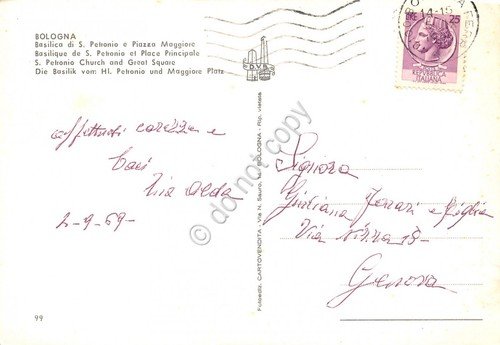 BOLOGNA
Basilica di S. Petronio e Piazza Maggiore
Basilique de S. Petronio et Place Principale
S. Petronio Church and Great Square
Die Basilik vom Hl. Petronio und Maggiore Platz
14-15
LIRE 25
REPUBBLICA
ITALIANA
D.V.
affettuosi carezze e
baci
Zia Alda
2-9-69-
Fotoediz. CARTOVENDITA - Via N. Sauro, - BOLOGNA - Rip. vietata
do not copy
Signora
Giuliana Ferrari e figlia
Via 18-
Genova
99